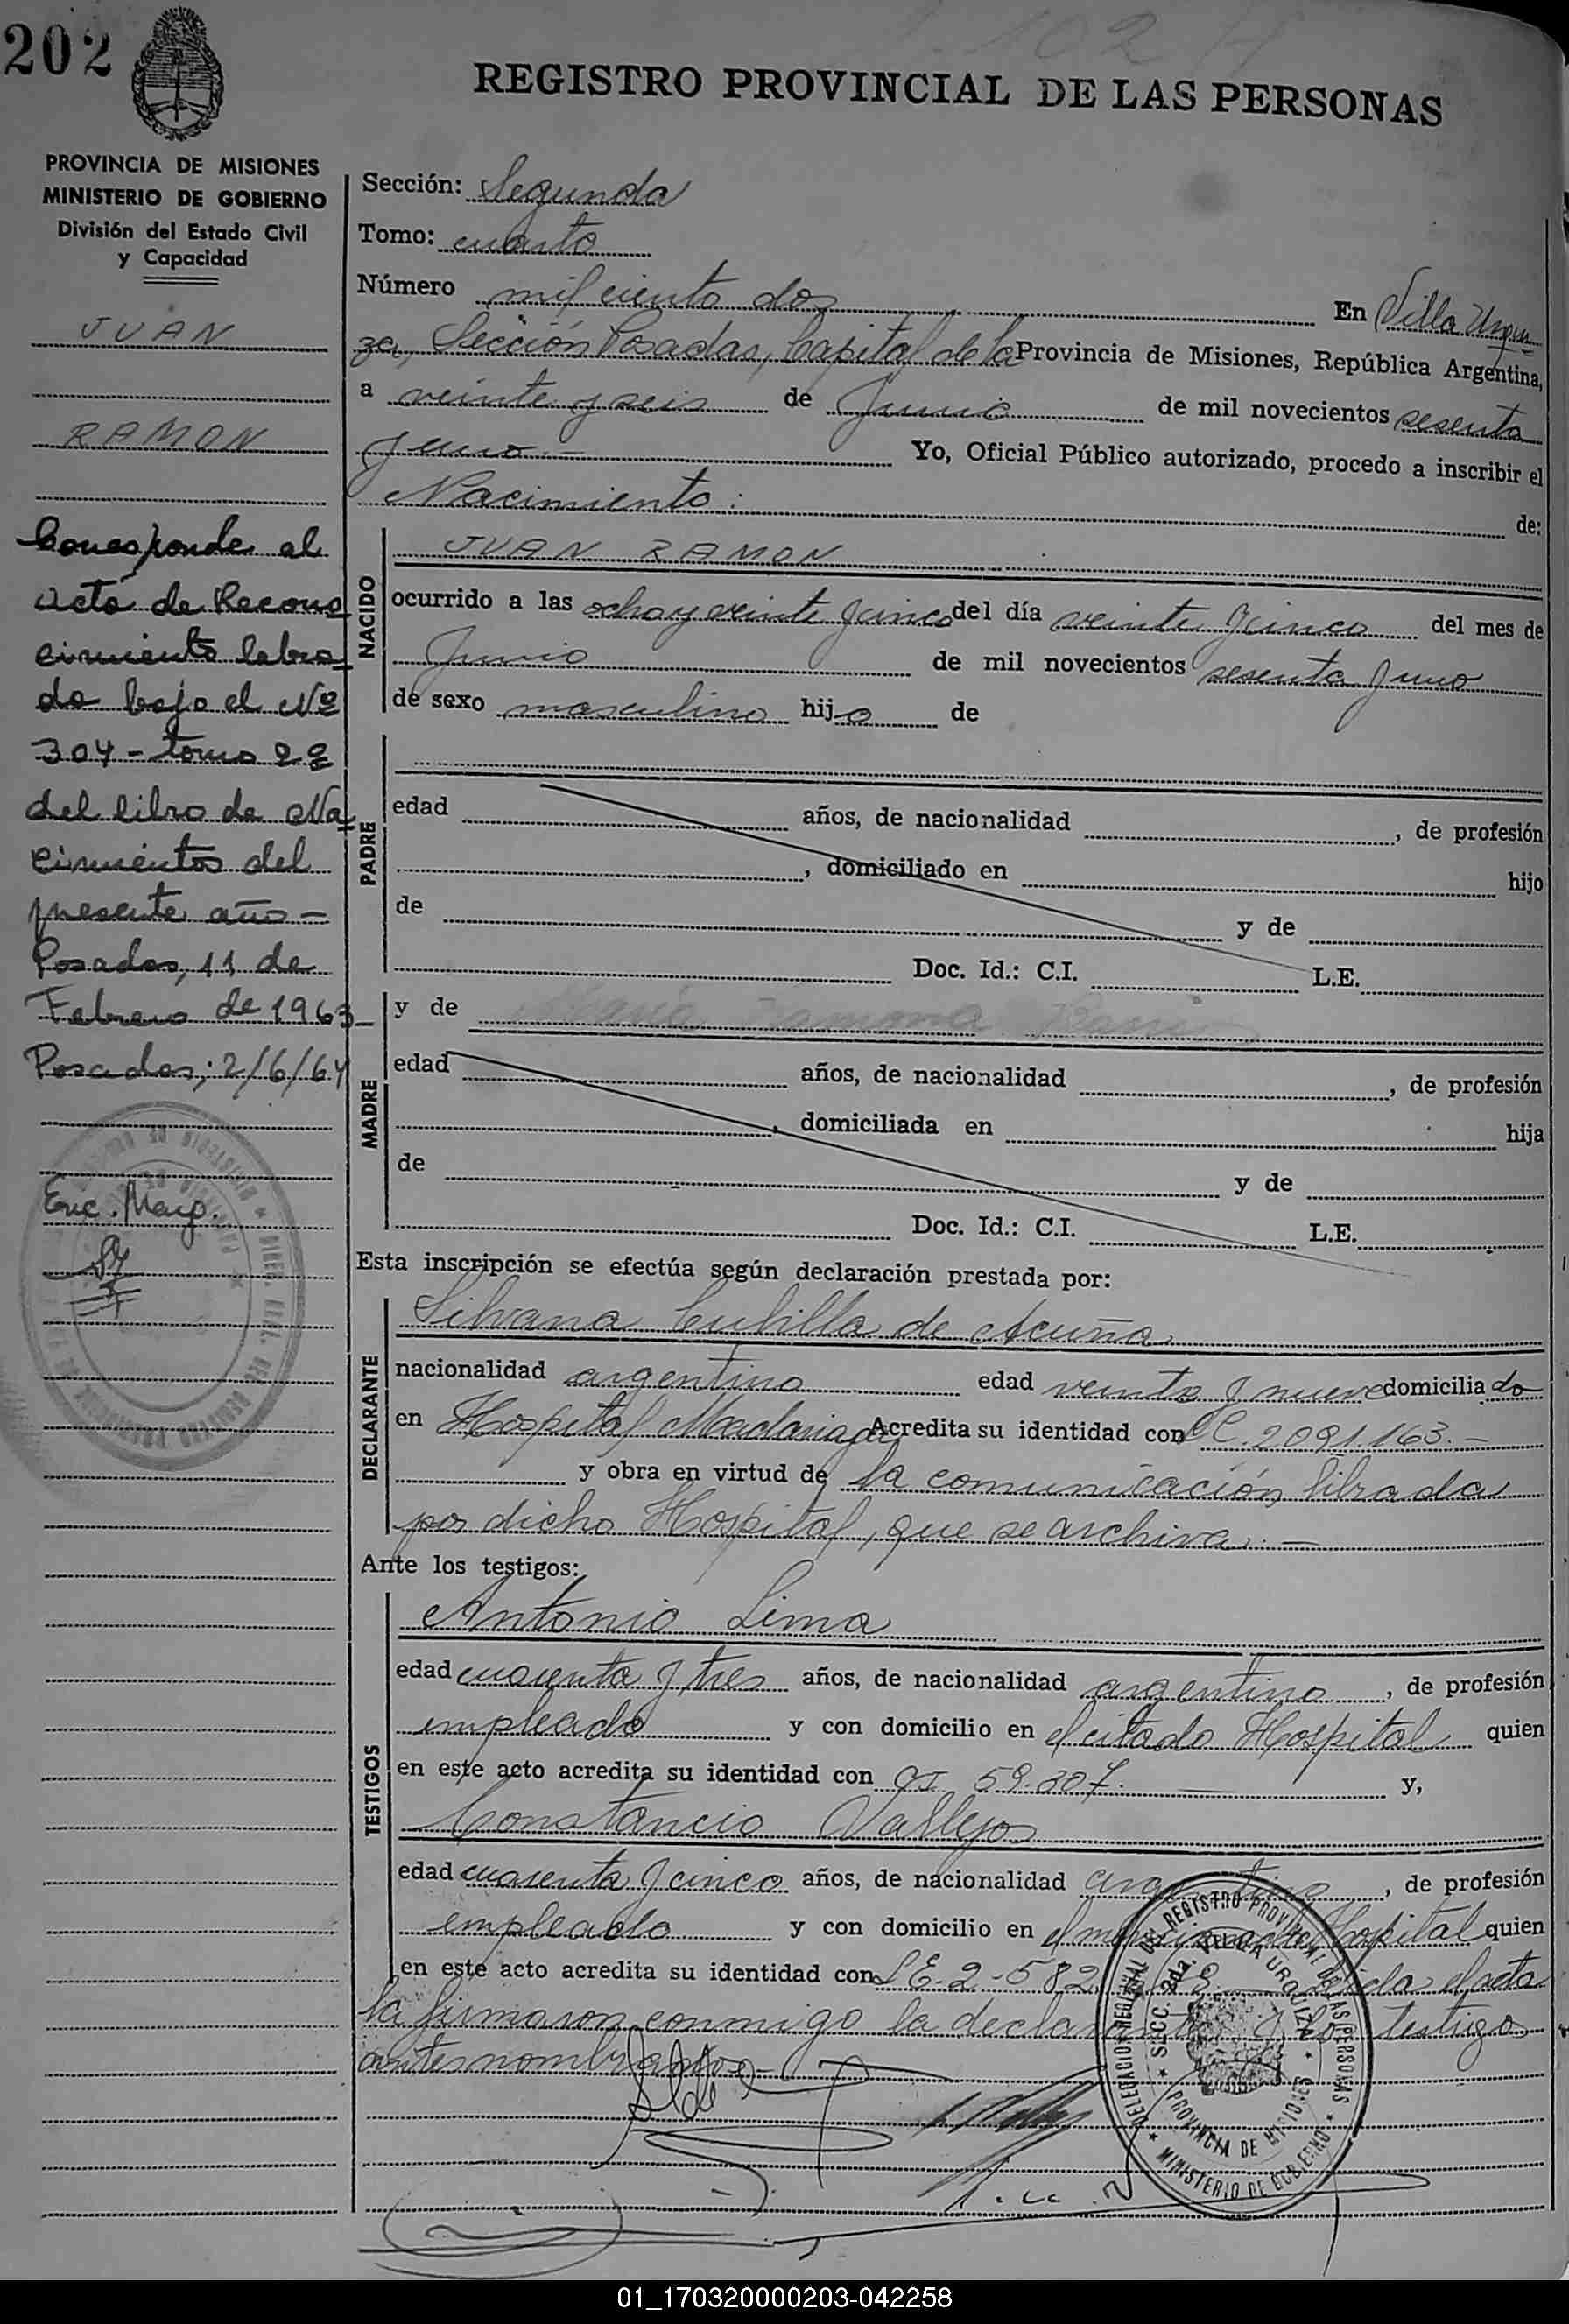 202
REGISTRO PROVINCIAL DE LAS PERSONAS
PROVINCIA DE MISIONES
MINISTERIO DE GOBIERNO
División del Estado Civil
y Capacidad
JUAN
RAMON
Corresponde al
acta de Recono
cimiento labra
do bajo el Nº
304 - tomo 2º
del libro de Na
cimientos del
presente año -
Posadas, 11 de
Febrero de 1963
Posadas; 2/6/64
Enc. Mayo.
Sección: Segunda
Tomo: cuarto
Número mil ciento dos En Villa Urqui
za, Sección Posadas, Capital de la Provincia de Misiones, República Argentina,
a veinte y seis de Junio de mil novecientos sesenta
y uno.- Yo, Oficial Público autorizado, procedo a inscribir el
Nacimiento: de:
NACIDO
JUAN RAMON
ocurrido a las ocho y veinte y cinco del día veinte y cinco del mes de
Junio de mil novecientos sesenta y uno
de sexo masculino hijo de
PADRE
edad años, de nacionalidad , de profesión
, domiciliado en hijo
de y de
Doc. Id.: C.I. L.E.
MADRE
y de María Ramona
edad años, de nacionalidad , de profesión
, domiciliada en hija
de y de
Doc. Id.: C.I. L.E.
Esta inscripción se efectúa según declaración prestada por:
DECLARANTE
Silvana Cubilla de Acuña
nacionalidad argentina edad veinte y nueve domiciliado
en Hospital Madariaga Acredita su identidad con L C. 2091.163.-
y obra en virtud de la comunicación librada
por dicho Hospital, que se archiva.-
Ante los testigos:
TESTIGOS
Antonio Lima
edad cuarenta y tres años, de nacionalidad argentino, de profesión
empleado y con domicilio en el citado Hospital quien
en este acto acredita su identidad con CI 59.307.- y,
Constancio Vallejos
edad cuarenta y cinco años, de nacionalidad argentino, de profesión
empleado y con domicilio en el mencionado Hospital quien
en este acto acredita su identidad con L E. 2-582. Leída el acta
la firmaron conmigo la declarante y los testigos
antes nombrados.-
DELEGACION REGIONAL DEL REGISTRO PROVINCIAL DE LAS PERSONAS
SECC. 2da. VILLA URQUIZA
PROVINCIA DE MISIONES
MINISTERIO DE GOBIERNO
01_170320000203-042258